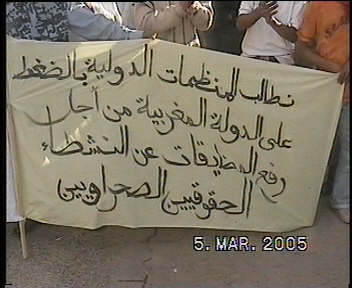 نطالب المنظمات الدولية بالضغط
على الدولة المغربية من أجل
رفع المضايقات عن النشطاء
الحقوقيين الصحراويين
5. MAR. 2005